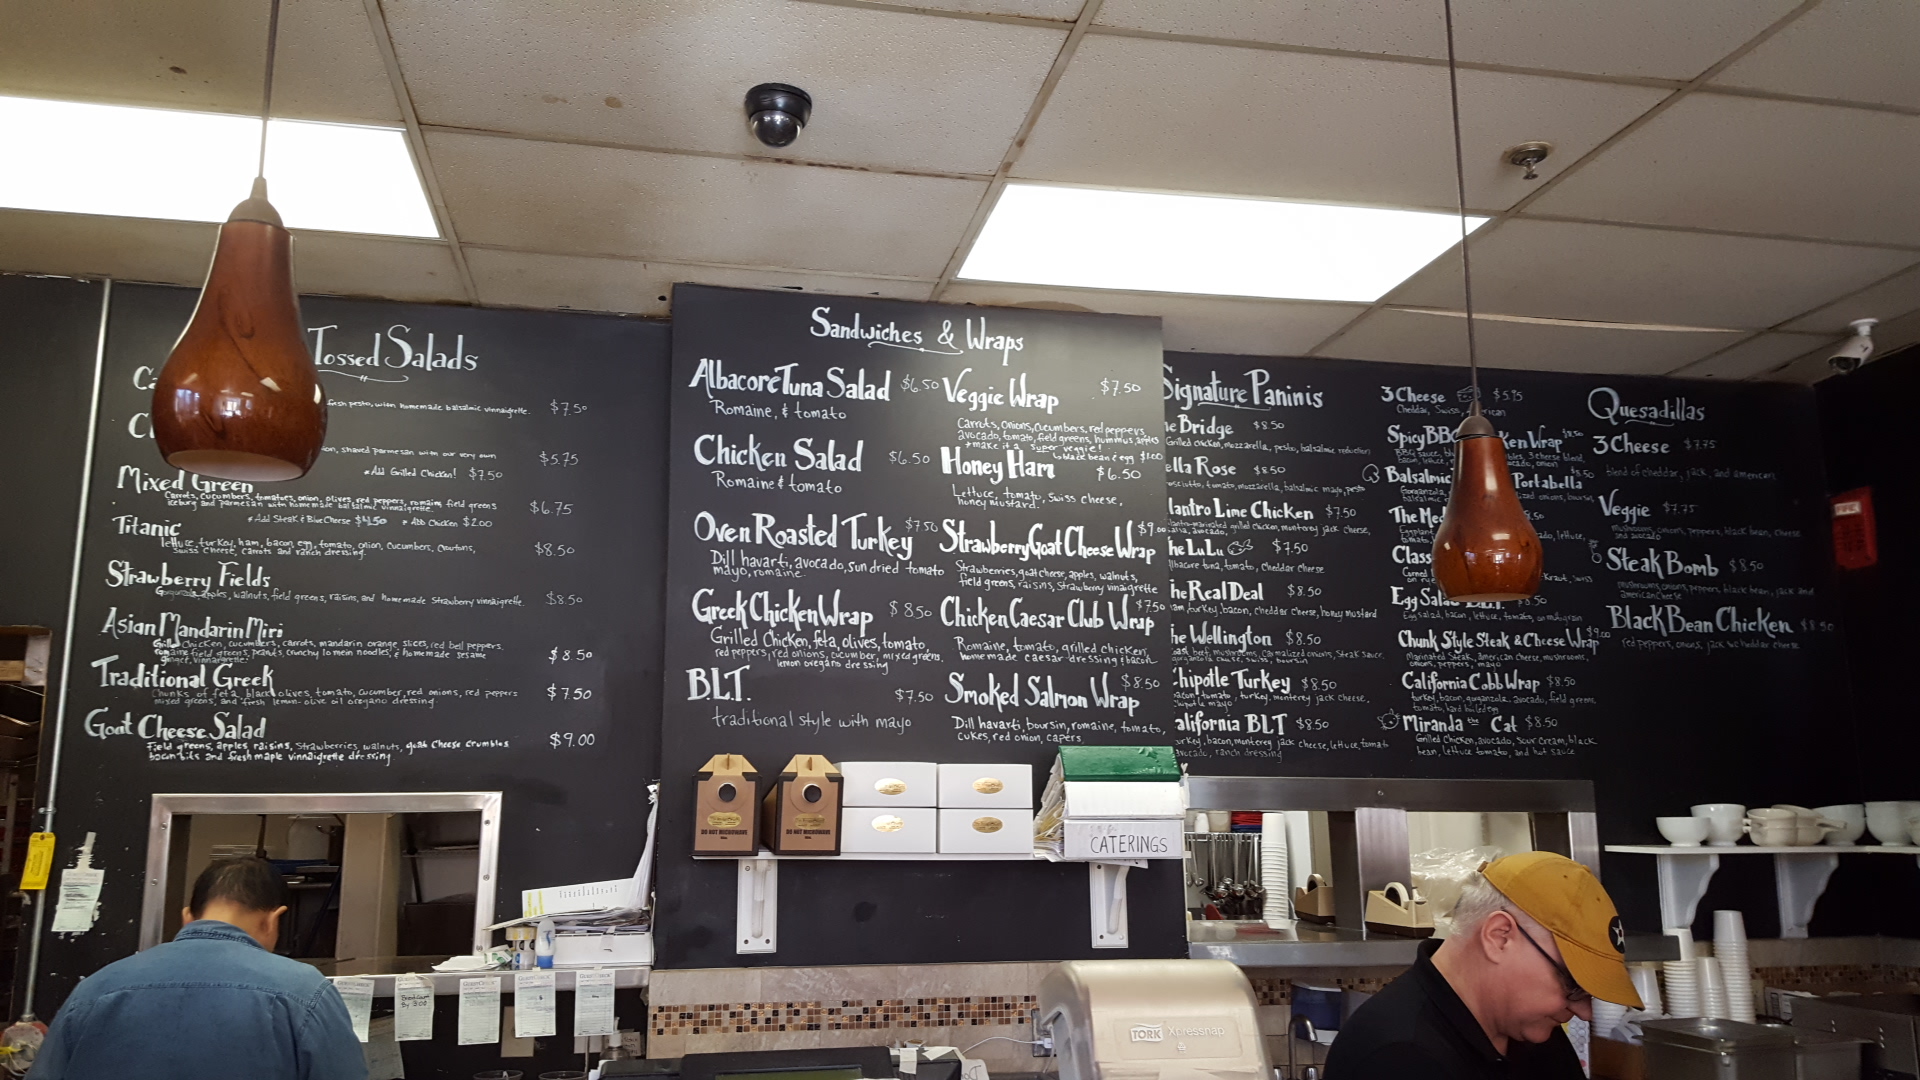 Tossed Salads
fresh pesto, with homemade balsalmic vinnaigrette.
$7.50
shaved parmesan with our very own
$5.75
*Add Grilled Chicken! $7.50
Mixed Green
Carrots, cucumbers, tomatoes, onion, olives, red peppers, romaine, field greens
iceburg and parmesan with homemade balsalmic vinnaigrette.
$6.75
*Add Steak & Blue Cheese $4.50 * Add Chicken $2.00
Titanic
lettuce, turkey, ham, bacon, egg, tomato, onion, cucumbers, croutons,
Swiss cheese, carrots and ranch dressing.
$8.50
Strawberry Fields
Gorgonzola, apples, walnuts, field greens, raisins, and homemade strawberry vinnaigrette.
$8.50
Asian Mandarin Miri
Grilled chicken, cucumbers, carrots, mandarin orange slices, red bell peppers,
romaine field greens, peanuts, crunchy lo mein noodles, & homemade sesame
ginger vinnaigrette.
$8.50
Traditional Greek
Chunks of feta, black olives, tomato, cucumber, red onions, red peppers
mixed greens, and fresh lemon-olive oil oregano dressing.
$7.50
Goat Cheese Salad
Field greens, apples, raisins, strawberries, walnuts, goat cheese crumbles
bacon bits and fresh maple vinnaigrette dressing.
$9.00
Sandwiches & Wraps
Albacore Tuna Salad $6.50
Romaine, & tomato
Chicken Salad $6.50
Romaine & tomato
Oven Roasted Turkey $7.50
Dill havarti, avocado, sun dried tomato
mayo, romaine.
Greek Chicken Wrap $8.50
Grilled Chicken, feta, olives, tomato,
red peppers, red onions, cucumber, mixed greens.
lemon oregano dressing
BLT. $7.50
traditional style with mayo
Veggie Wrap $7.50
Carrots, onions, cucumbers, red peppers,
avocado, tomato, field greens, hummus, apples
*make it a super veggie!
black bean & egg $1.00
Honey Ham $6.50
Lettuce, tomato, Swiss cheese,
honey mustard.
Strawberry Goat Cheese Wrap $9.00
Strawberries, goat cheese, apples, walnuts,
field greens, raisins, strawberry vinaigrette
Chicken Caesar Club Wrap $7.50
Romaine, tomato, grilled chicken,
homemade caesar dressing & bacon
Smoked Salmon Wrap $8.50
Dill havarti, boursin, romaine, tomato,
cukes, red onion, capers
Signature Paninis
Bridge $8.50
Grilled chicken, mozzarella, pesto, balsalmic reduction
ella Rose $8.50
tomato, mozzarella, balsalmic mayo, pesto
lantro Lime Chicken $7.50
grilled chicken, monterey jack cheese,
avocado
he LuLu $7.50
albacore tuna, tomato, cheddar cheese
he Real Deal $8.50
ham, turkey, bacon, cheddar cheese, honey mustard
he Wellington $8.50
roast beef, mushrooms, carmalized onions, steak sauce,
hipotle Turkey $8.50
bacon, tomato, turkey, monterey jack cheese,
chipotle mayo
alifornia BLT $8.50
turkey, bacon, monterey jack cheese, lettuce, tomato
avocado, ranch dressing
3 Cheese $5.95
Cheddar, Swiss,
Spicy BBQ ken Wrap $8.50
BBQ sauce, 3 cheese blend,
Balsalmic Portabella $8.50
The Med
lettuce,
Class
Kraut, Swiss
Egg Salad
Egg salad, bacon, lettuce, tomato, on multigrain
Chunk Style Steak & Cheese Wrap $9.00
Marinated Steak, american cheese, mushrooms,
onions, peppers, mayo
California Cobb Wrap $8.50
turkey, bacon, gorgonzola, avocado, field greens,
tomato, hard boiled egg
Miranda the Cat $8.50
Grilled chicken, avocado, sour cream, black
bean, lettuce, tomato, and hot sauce
Quesadillas
3 Cheese $7.75
blend of cheddar, jack, and american
Veggie $7.75
mushrooms, onions, peppers, black bean, cheese
and avocado
Steak Bomb $8.50
mushrooms, onions, peppers, black bean, jack and
american cheese
Black Bean Chicken $8.50
red peppers, onions, jack & cheddar cheese
DO NOT MICROWAVE
DO NOT MICROWAVE
CATERINGS
TORK Xpressnap